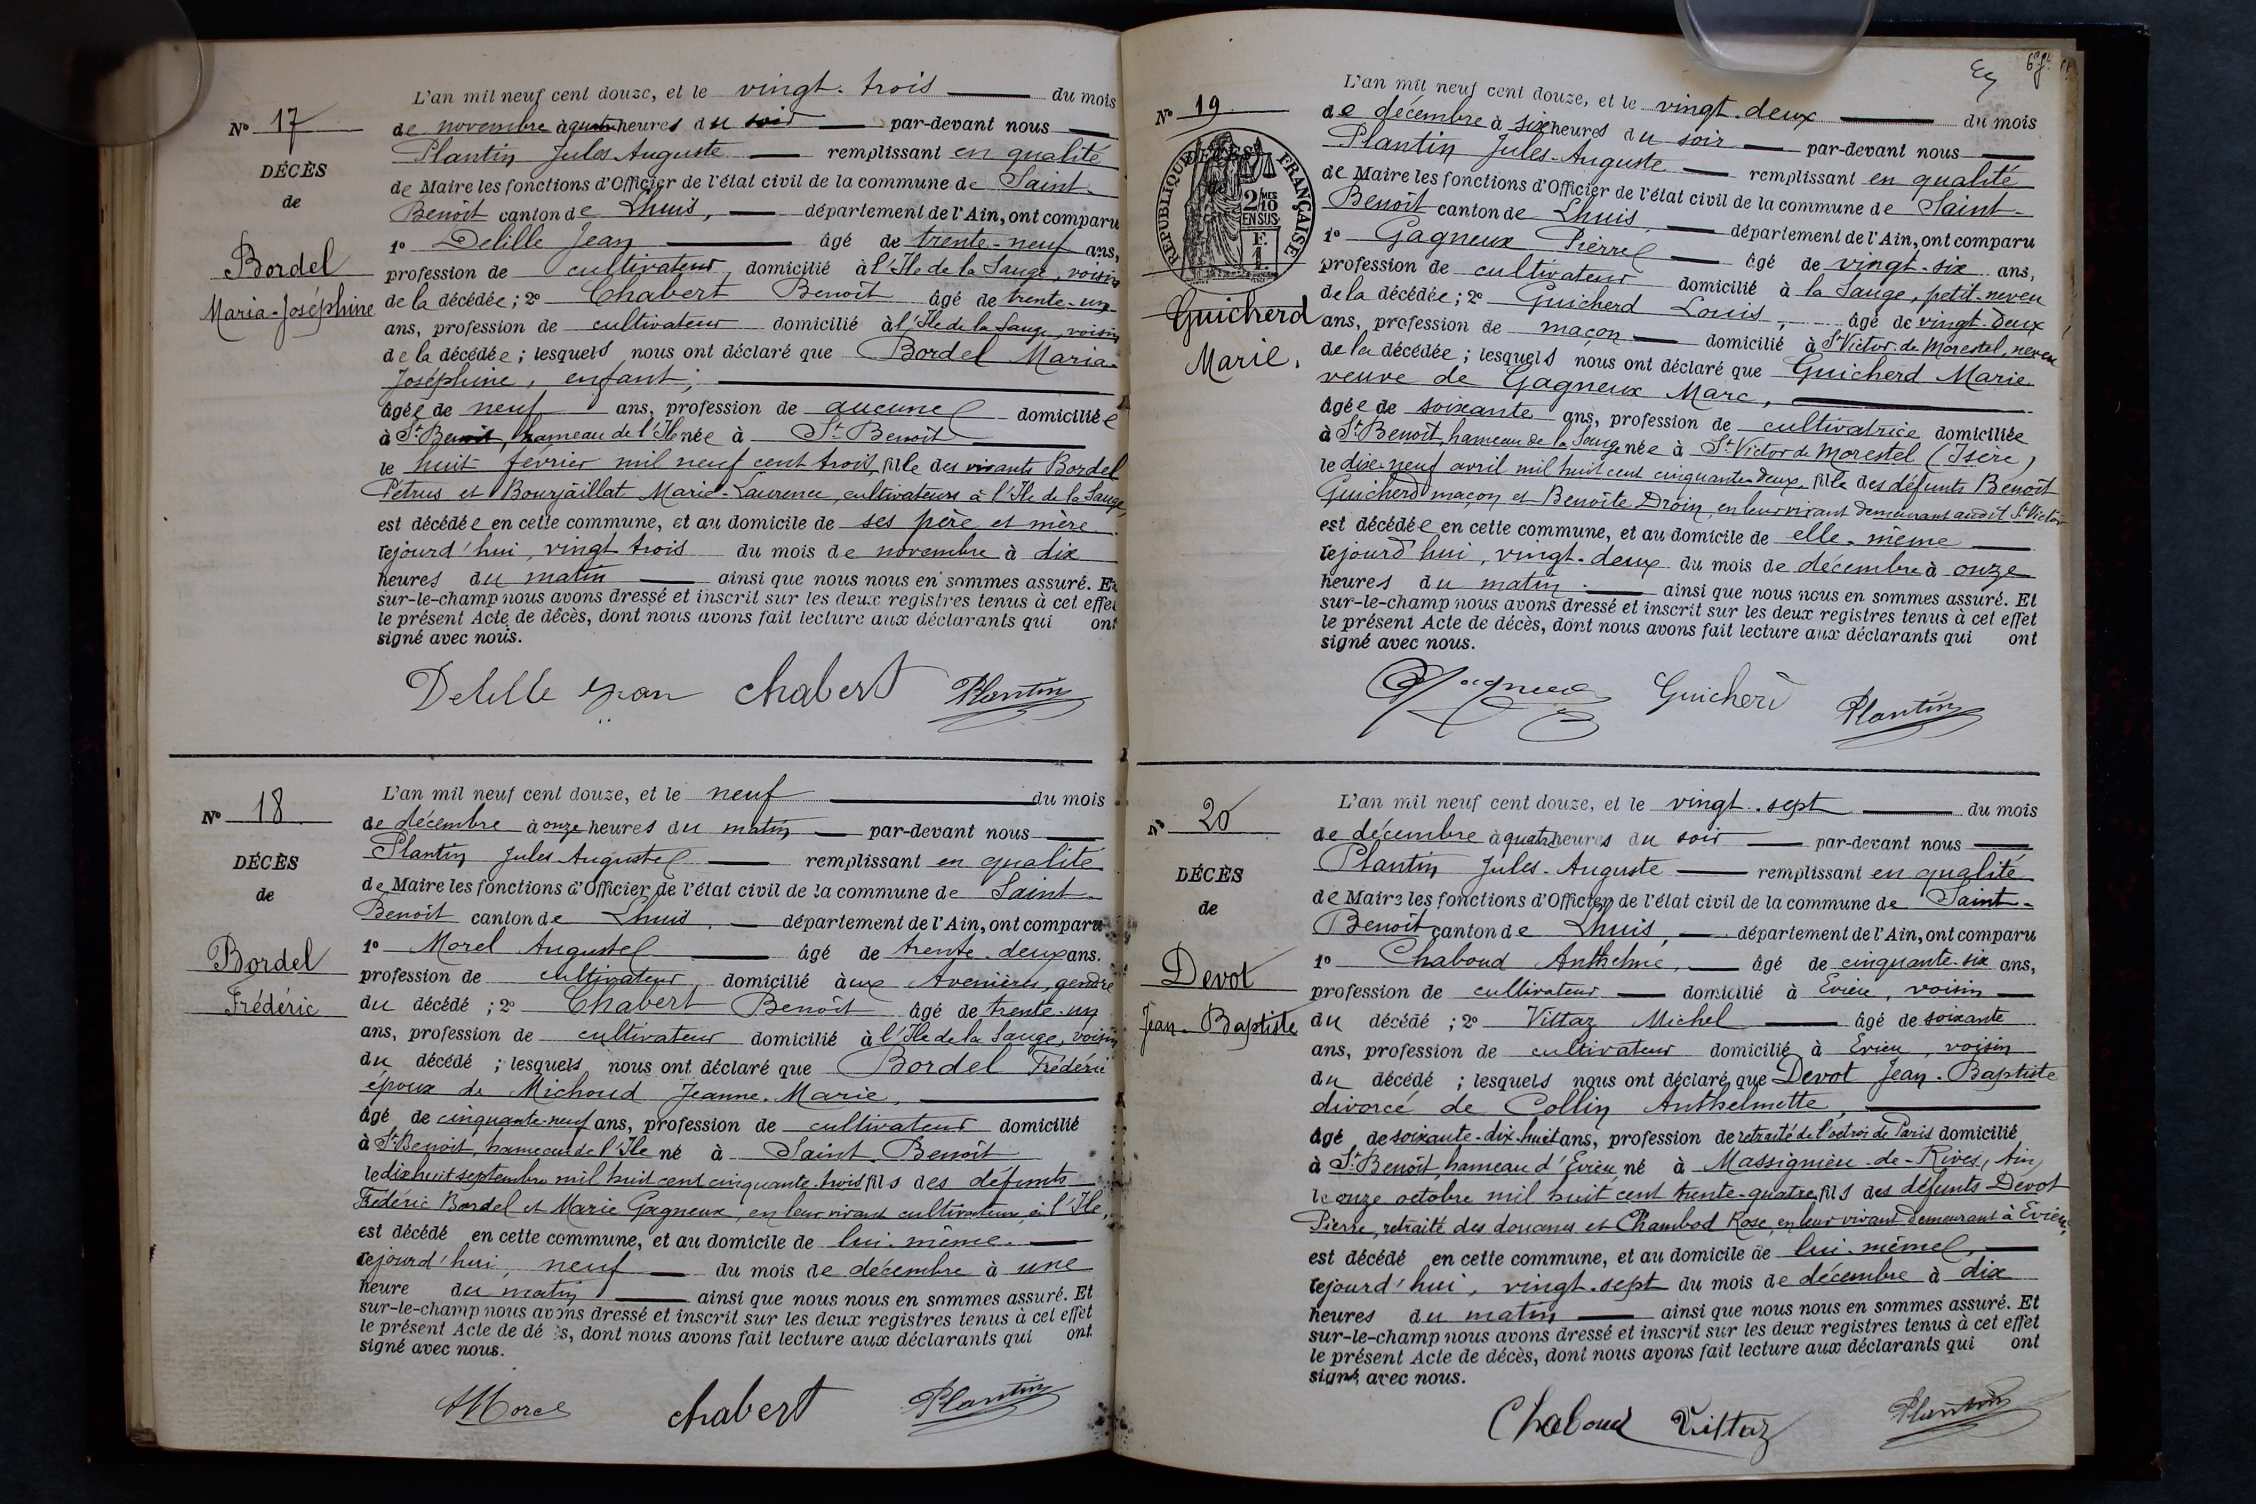 N° 17
DÉCÈS
de
Bordel
Maria-Joséphine
L'an mil neuf cent douze, et le vingt-trois du mois
de novembre à quatre heures du soir par-devant nous
Plantin Jules Auguste remplissant en qualité
de Maire les fonctions d'Officier de l'état civil de la commune de Saint-
Benoît canton de Lhuis, département de l'Ain, ont comparu
1° Delille Jean âgé de trente-neuf ans,
profession de cultivateur domicilié à l'Ile de la Sauge, voisin
de la décédée ; 2° Chabert Benoît âgé de trente-un
ans, profession de cultivateur domicilié à l'Ile de la Sauge, voisin
de la décédée ; lesquels nous ont déclaré que Bordel Maria-
Joséphine, enfant,
âgée de neuf ans, profession de aucune domiciliée
à St Benoit, hameau de l'Ile née à St Benoît
le huit février mil neuf cent trois, fille des vivants Bordel
Pétrus et Bourjaillat Marie-Laurence, cultivateurs à l'Ile de la Sauge,
est décédée en cette commune, et au domicile de ses père et mère
cejourd'hui, vingt trois du mois de novembre à dix
heures du matin ainsi que nous nous en sommes assuré. Et
sur-le-champ nous avons dressé et inscrit sur les deux registres tenus à cet effet
le présent Acte de décès, dont nous avons fait lecture aux déclarants qui ont
signé avec nous.
Delille Jean Chabert Plantin
N° 18
DÉCÈS
de
Bordel
Frédéric
L'an mil neuf cent douze, et le neuf du mois
de décembre à onze heures du matin par-devant nous
Plantin Jules Auguste remplissant en qualité
de Maire les fonctions d'Officier de l'état civil de la commune de Saint-
Benoît canton de Lhuis, département de l'Ain, ont comparu
1° Morel Auguste âgé de trente-deux ans.
profession de cultivateur, domicilié à ux Avenières, gendre
du décédé ; 2° Chabert Benoît âgé de trente-un
ans, profession de cultivateur domicilié à l'Ile de la Sauge, voisin
du décédé ; lesquels nous ont déclaré que Bordel Frédéric
époux de Michoud Jeanne-Marie,
âgé de cinquante-neuf ans, profession de cultivateur domicilié
à St Benoit, hameau de l'Ile né à Saint-Benoît
le dix huit septembre mil huit cent cinquante-trois fils des défunts
Frédéric Bordel et Marie Gagneux, en leur vivant cultivateurs à l'Ile,
est décédé en cette commune, et au domicile de lui-même
cejourd'hui, neuf du mois de décembre à une
heure du matin ainsi que nous nous en sommes assuré. Et
sur-le-champ nous avons dressé et inscrit sur les deux registres tenus à cet effet
le présent Acte de dé s, dont nous avons fait lecture aux déclarants qui ont
signé avec nous.
AMorel Chabert Plantin
N° 19
DÉCÈS
RÉPUBLIQUE FRANÇAISE
2/10MES
EN SUS
F.
1.
Guicherd
Marie.
L'an mil neuf cent douze, et le vingt-deux du mois
de décembre à six heures du soir par-devant nous
Plantin Jules-Auguste remplissant en qualité
de Maire les fonctions d'Officier de l'état civil de la commune de Saint-
Benoît canton de Lhuis, département de l'Ain, ont comparu
1° Gagneux Pierre âgé de vingt-six ans,
profession de cultivateur domicilié à la Sauge, petit-neveu
de la décédée ; 2° Guicherd Louis, âgé de vingt-deux
ans, profession de maçon domicilié à St Victor-de-Morestel, neveu
de la décédée ; lesquels nous ont déclaré que Guicherd Marie
veuve de Gagneux Marc,
âgée de soixante ans, profession de cultivatrice domiciliée
à St Benoît, hameau de la Sauge née à St Victor de Morestel (Isère)
le dix-neuf avril mil huit cent cinquante-deux, fille des défunts Benoît
Guicherd maçon et Benoîte Droin, en leur vivant demeurant audit St Victor
est décédée en cette commune, et au domicile de elle-même
cejourd'hui, vingt-deux du mois de décembre à onze
heures du matin ainsi que nous nous en sommes assuré. Et
sur-le-champ nous avons dressé et inscrit sur les deux registres tenus à cet effet
le présent Acte de décès, dont nous avons fait lecture aux déclarants qui ont
signé avec nous.
Gagneux Guicherd Plantin
N° 20
DÉCÈS
de
Devot
Jean-Baptiste
L'an mil neuf cent douze, et le vingt-sept du mois
de décembre à quatre heures du soir par-devant nous
Plantin Jules-Auguste remplissant en qualité
de Maire les fonctions d'Officier de l'état civil de la commune de Saint-
Benoît canton de Lhuis, département de l'Ain, ont comparu
1° Chaboud Anthelme, âgé de cinquante-six ans,
profession de cultivateur domicilié à Evieu, voisin
du décédé ; 2° Vittaz Michel âgé de soixante
ans, profession de cultivateur domicilié à Evieu, voisin
du décédé ; lesquels nous ont déclaré que Devot Jean-Baptiste
divorcé de Collin Anthelmette,
âgé de soixante-dix-huit ans, profession de retraité de l'octroi de Paris domicilié
à St Benoît, hameau d'Evieu, né à Massignieu-de-Rives, Ain,
le onze octobre mil huit cent trente-quatre, fils des défunts Devot
Pierre, retraité des douanes et Chambod Rose, en leur vivant demeurant à Evieu,
est décédé en cette commune, et au domicile de lui-même,
cejourd'hui, vingt-sept du mois de décembre à dix
heures du matin ainsi que nous nous en sommes assuré. Et
sur-le-champ nous avons dressé et inscrit sur les deux registres tenus à cet effet
le présent Acte de décès, dont nous avons fait lecture aux déclarants qui ont
signé avec nous.
Chaboud Vittaz Plantin